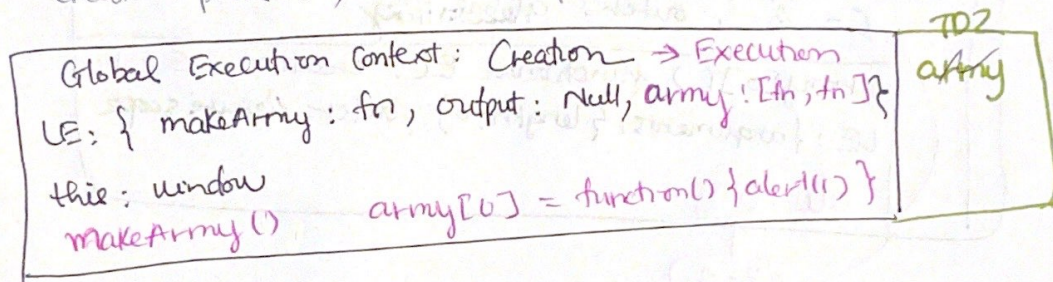 Global Execution Context: Creation → Execution
LE: { makeArmy : fn, output : Null, army : [fn, fn]}
this: window
makeArmy() army[0] = function() {alert(1)}
TDZ
army